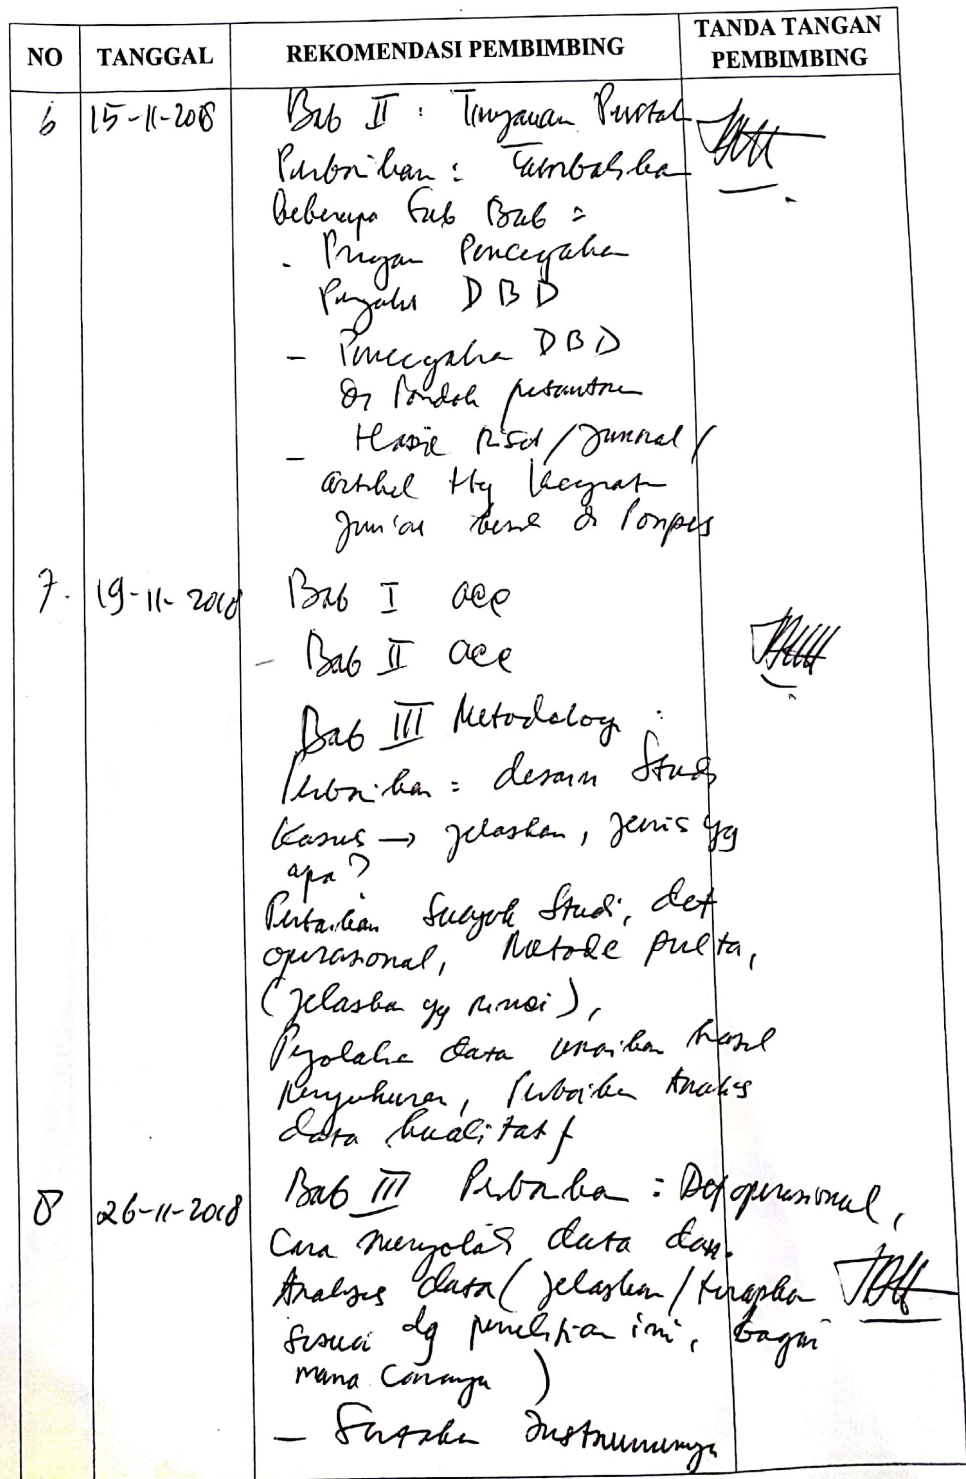 NO TANGGAL REKOMENDASI PEMBIMBING TANDA TANGAN PEMBIMBING
6 15-11-2018 Bab II : Tinjauan Pustak
Perbaikan : Tambahka
beberapa Sub Bab :
- Progam Pencegaha
Penyakit DBD
- Pencegaha DBD
di Pondok pesantren
- Hasil Riset / Junrnal /
artikel ttg
di Ponpes
7. 19-11-2018 Bab I acc
- Bab II acc
Bab III Metodology :
Perbaikan : desain Studi
Kasus → jelaskan, jenis yg
apa?
Perbaikan Subyek Studi, def
operasional, Metode pulta,
(jelaska yg rinci),
Pegolaha data uraikan hasil
Pengukuran, Perbaika Analis
data kualitatif
8 26-11-2018 Bab III Perbaika : Def operasional,
Cara mengolah data dan
Analisis data ( jelaskan / terapka
sesuai dg penelitian ini, bagai
mana Caranya )
- Sertaka Instrumennya